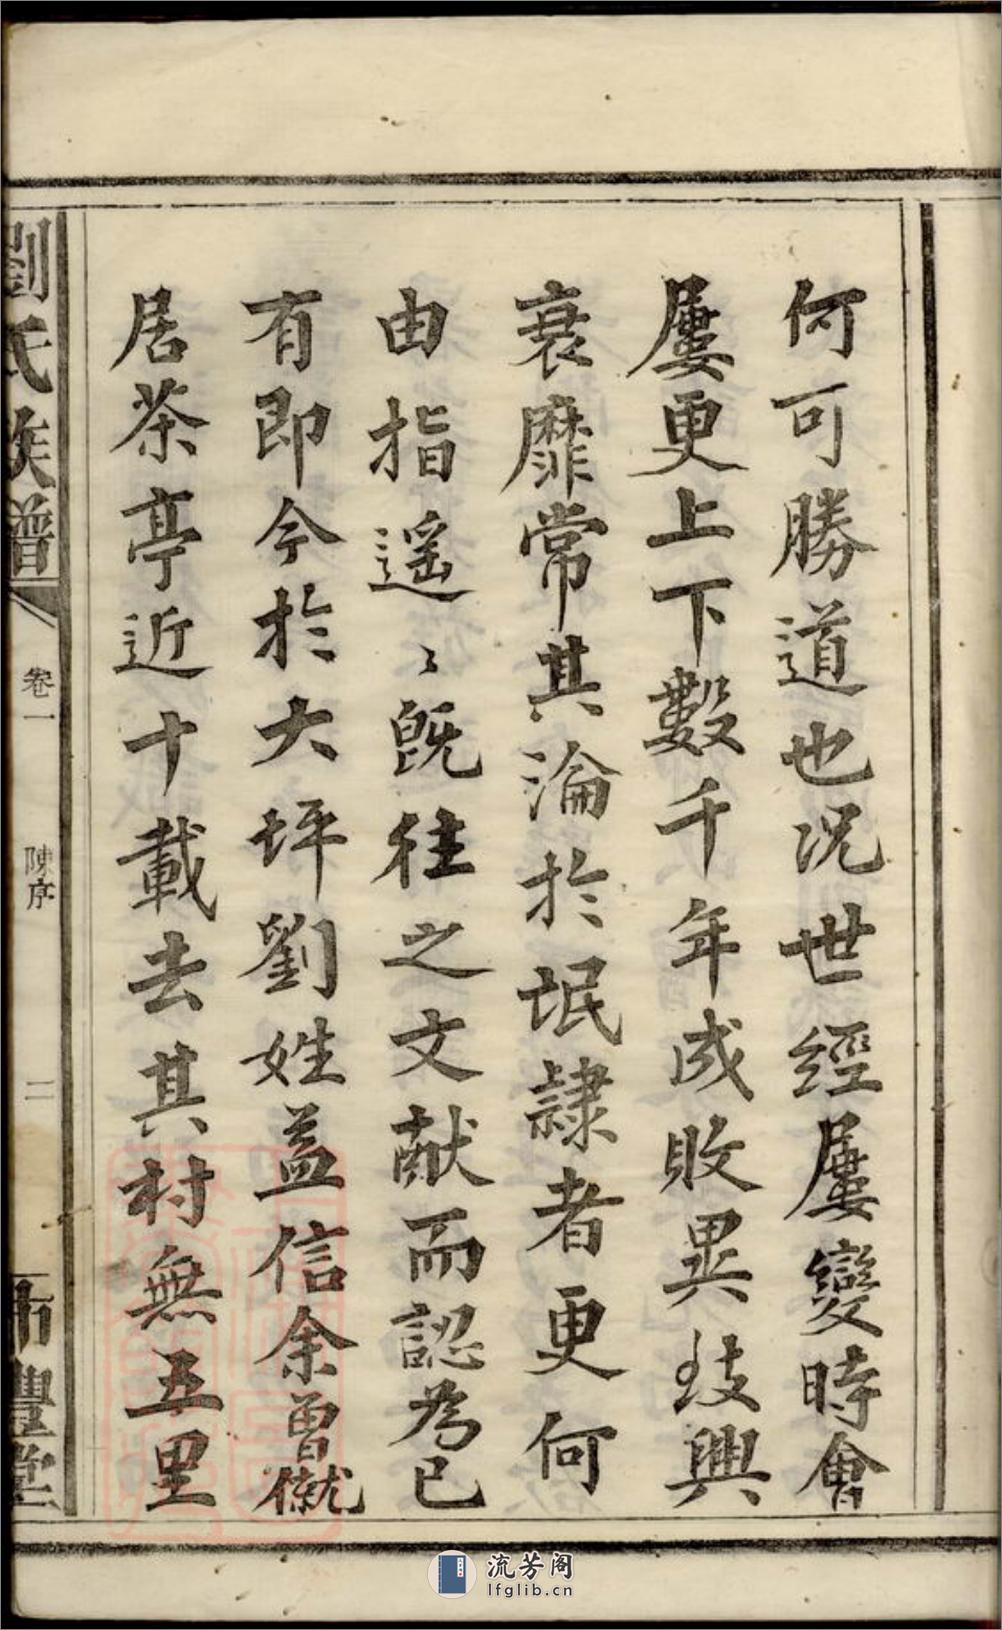 何可勝道也况世經屢變時會
屢更上下數千年成敗異歧興
衰靡常其淪於氓隸者更何
由指遥〻既往之文献而認為已
有即今於大坪劉姓益信余曾僦
居茶亭近十載去其村無五里
劉氏族譜
卷一
陳序
二
豐堂
流芳阁
lfglib.cn